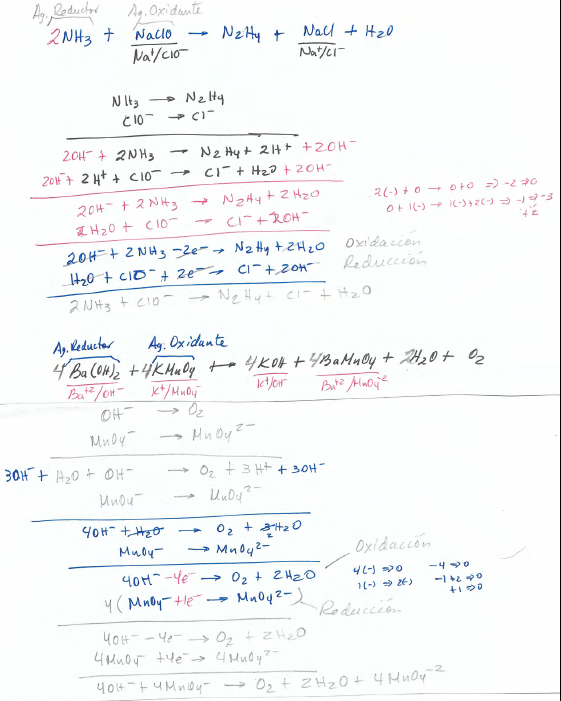 Ag. Reductor Ag. Oxidante
2NH₃ + NaClO → N₂H₄ + NaCl + H₂O
Na⁺/ClO⁻ Na⁺/Cl⁻
NH₃ → N₂H₄
ClO⁻ → Cl⁻
2OH⁻ + 2NH₃ → N₂H₄ + 2H⁺ + 2OH⁻
2OH⁻ + 2H⁺ + ClO⁻ → Cl⁻ + H₂O + 2OH⁻
2OH⁻ + 2NH₃ → N₂H₄ + 2H₂O
2H₂O + ClO⁻ → Cl⁻ + 2OH⁻
2(-) + 0 → 0+0 ⇒ -2 ⇒ 0
0 + 1(-) → 1(-) + 2(-) ⇒ -1 ⇒ -3
+2
2OH⁻ + 2NH₃ - 2e⁻ → N₂H₄ + 2H₂O Oxidación
H₂O + ClO⁻ + 2e⁻ → Cl⁻ + 2OH⁻ Reducción
2NH₃ + ClO⁻ → N₂H₄ + Cl⁻ + H₂O
Ag. Reductor Ag. Oxidante
4Ba(OH)₂ + 4KMnO₄ → 4KOH + 4BaMnO₄ + 2H₂O + O₂
Ba⁺²/OH⁻ K⁺/MnO₄⁻ K⁺/OH⁻ Ba⁺²/MnO₄⁻²
OH⁻ → O₂
MnO₄⁻ → MnO₄²⁻
3OH⁻ + H₂O + OH⁻ → O₂ + 3H⁺ + 3OH⁻
MnO₄⁻ → MnO₄²⁻
4OH⁻ + H₂O → O₂ + 3H₂O
2
MnO₄⁻ → MnO₄²⁻
Oxidación
4OH⁻ - 4e⁻ → O₂ + 2H₂O
4(MnO₄⁻ + 1e⁻ → MnO₄²⁻)
4(-) ⇒ 0 -4 ⇒ 0
1(-) ⇒ 2(-) -1+2 ⇒ 0
+1 ⇒ 0
Reducción
4OH⁻ - 4e⁻ → O₂ + 2H₂O
4MnO₄⁻ + 4e⁻ → 4MnO₄²⁻
4OH⁻ + 4MnO₄⁻ → O₂ + 2H₂O + 4MnO₄⁻²